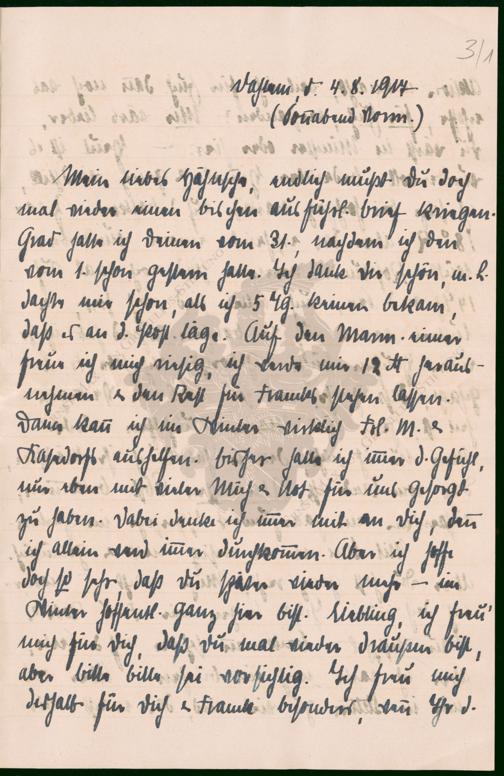 3/1
Dahlem, d. 4.8.1917
(Sonnabend Vorm.)
Mein liebes Hähnche, endlich mußt Du doch
mal wieder einen bischen ausführl. brief kriegen.
Grad hatte ich Deinen vom 31., nachdem ich den
vom 1. schon gestern hatte. Ich dank dir schön, m. L.
dachte mir schon, als ich 5 Tg. keinen bekam,
daß es an d. Post läge. Auf den Mann. eimer
freue ich mich riesig, ich werde mir 12 ℔ heraus-
nehmen & den Rest für Frankes stehen lassen.
Dann kann ich im Winter wirklich Frl. M. &
aushelfen. bisher hatte ich immer d. Gefühl,
nur eben mit vieler Müh & Not für uns gesorgt
zu haben. Dabei denke ich immer mit an Dich, denn
ich allein werd immer durchkommen. Aber ich hoffe
doch so sehr, daß Du später wieder mehr — im
Winter hoffentl. ganz hier bist. Liebling, ich freu'
mich für Dich, daß Du mal wieder draußen bist,
aber bitte bitte sei vorsichtig. Ich freu mich
deshalb für Dich & Franke besonders, wenn Ihr d.